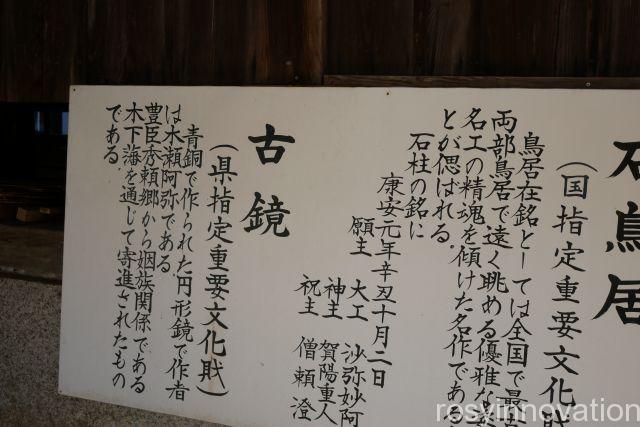 石鳥居
(国指定重要文化財
鳥居在銘としては全国で最
両部鳥居で遠く眺める優雅な
名工の精魂を傾けた名作である
とが偲ばれる。
石柱の銘に
康安元年辛丑十月二日
願主 大工 沙弥妙阿
神主 賀陽重人
祝主 僧頼澄
古鏡
(県指定重要文化財)
青銅で作られた円形鏡で作者
は木瀬阿弥である
豊臣秀頼郷から姻族関係である
木下海を通じて寄進されたもの
である。
rosyinnovation